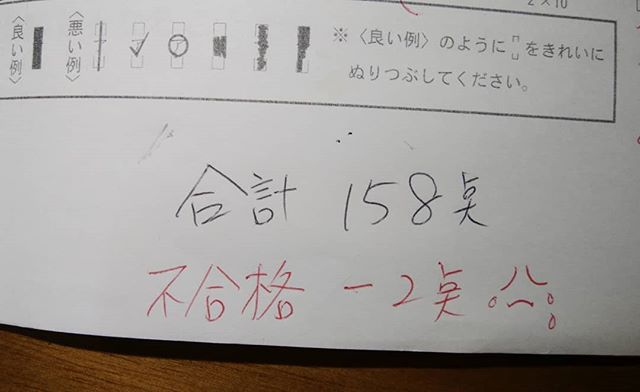 2×10
〈良い例〉 〈悪い例〉 ※〈良い例〉のように▯をきれいに
ぬりつぶしてください。
合計 158点
不合格 -2点